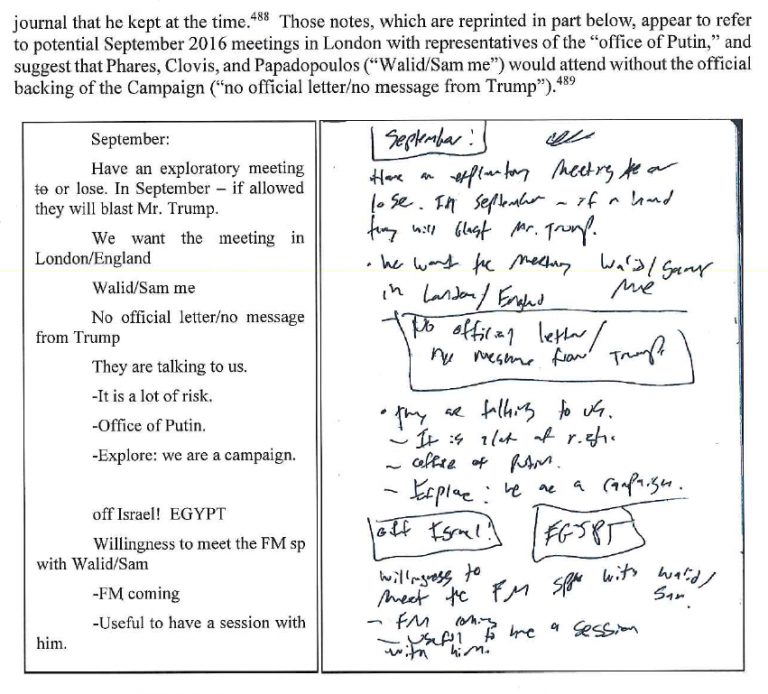 journal that he kept at the time.488 Those notes, which are reprinted in part below, appear to refer
to potential September 2016 meetings in London with representatives of the “office of Putin,” and
suggest that Phares, Clovis, and Papadopoulos (“Walid/Sam me”) would attend without the official
backing of the Campaign (“no official letter/no message from Trump”).489
September:
Have an exploratory meeting
to or lose. In September – if allowed
they will blast Mr. Trump.
We want the meeting in
London/England
Walid/Sam me
No official letter/no message
from Trump
They are talking to us.
-It is a lot of risk.
-Office of Putin.
-Explore: we are a campaign.
off Israel! EGYPT
Willingness to meet the FM sp
with Walid/Sam
-FM coming
-Useful to have a session with
him.
September:
Have an exploratory meeting to or
lose. In September – if allowed
they will blast Mr. Trump.
• We want the meeting Walid/Sam
in London/England me
No official letter/
no message from Trump
• They are talking to us.
– It is a lot of risk.
– office of
– Explore: we are a campaign.
off Israel! EGYPT
willingness to
meet the FM with Walid/
Sam
– FM coming
– useful to have a session
with him.